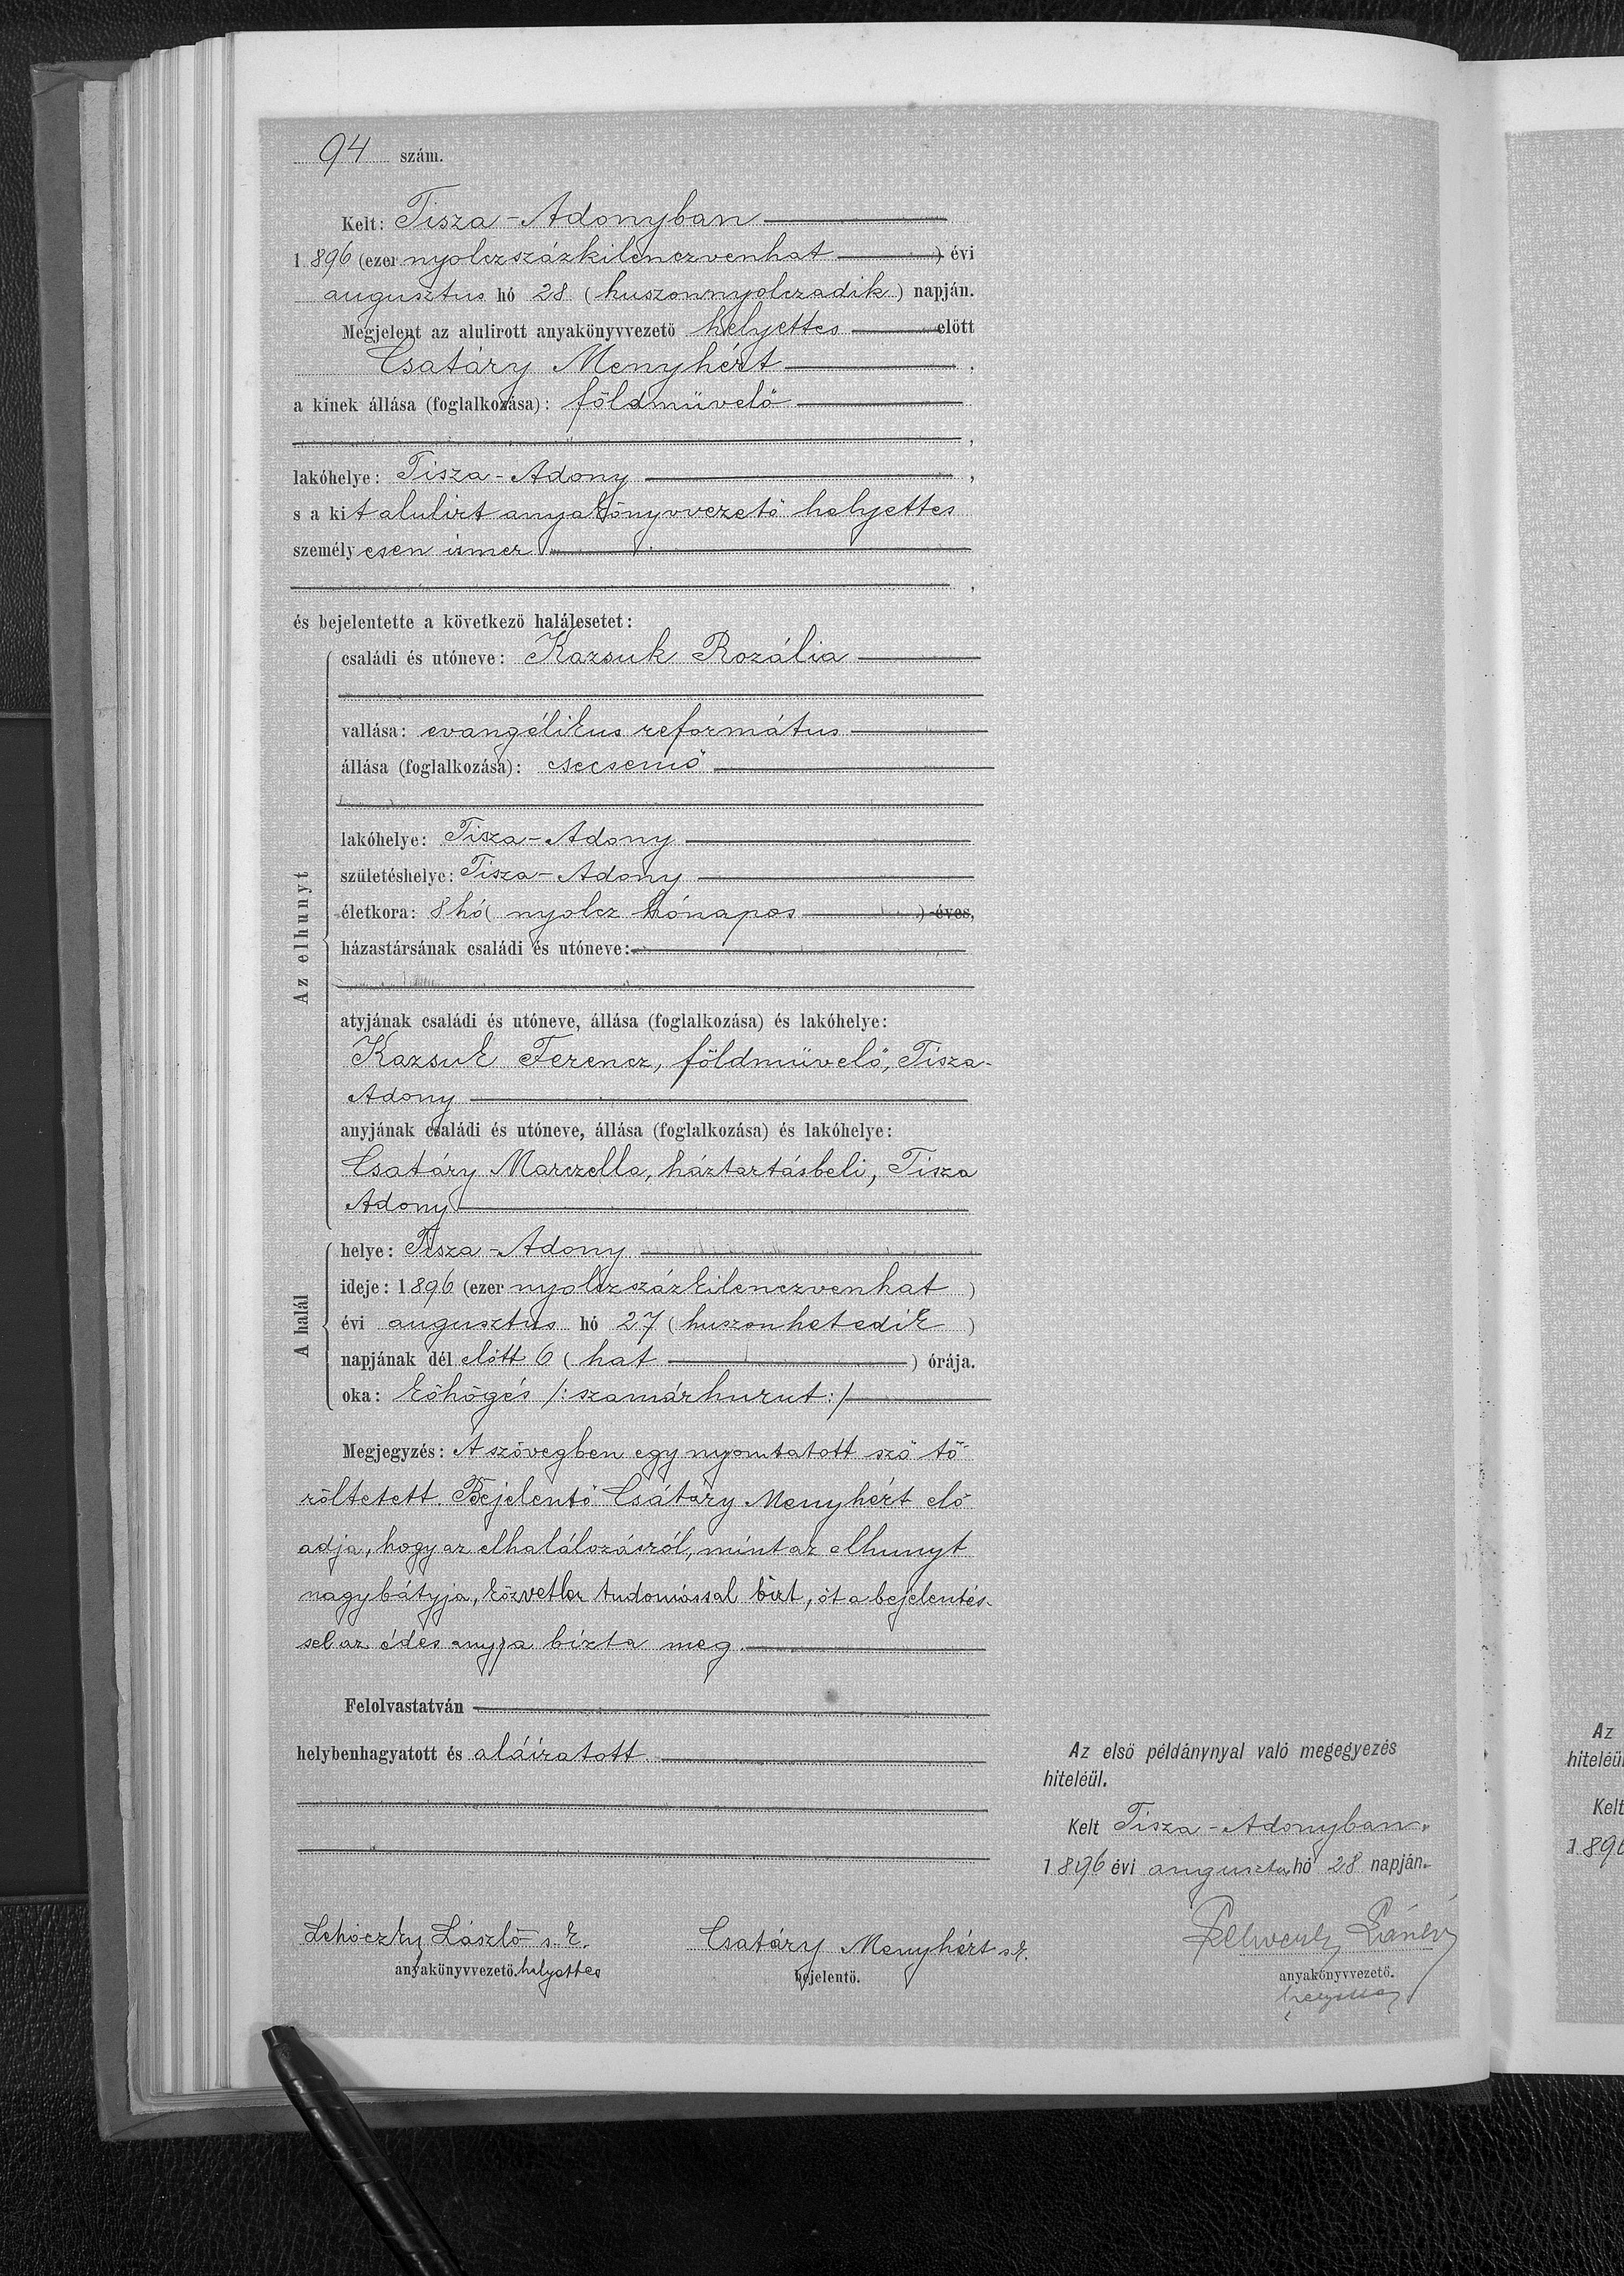 94 szám.
Kelt: Tisza-Adonyban
1896 (ezer nyolczszázkilenczvenhat) évi
augusztus hó 28 (huszonnyolczadik) napján.
Megjelent az alulirott anyakönyvvezető helyettes előtt
Csatáry Menyhért,
a kinek állása (foglalkozása): földmüvelő
,
lakóhelye: Tisza-Adony,
s a kit alulirt anyakönyvvezető helyettes
személyesen ismer
,
és bejelentette a következő halálesetet:
Az elhunyt
családi és utóneve: Kazsuk Rozália
vallása: evangélikus református
állása (foglalkozása): csecsemő
lakóhelye: Tisza-Adony
születéshelye: Tisza-Adony
életkora: 8 hó (nyolcz hónapos) éves,
házastársának családi és utóneve:
atyjának családi és utóneve, állása (foglalkozása) és lakóhelye:
Kazsuk Ferencz, földmüvelő, Tisza-
Adony
anyjának családi és utóneve, állása (foglalkozása) és lakóhelye:
Csatáry Marczella, háztartásbeli, Tisza
Adony
A halál
helye: Tisza-Adony
ideje: 1896 (ezer nyolczszázkilenczvenhat)
évi augusztus hó 27 (huszonhetedik)
napjának dél előtt 6 (hat) órája.
oka: köhögés /: szamárhurut :/
Megjegyzés: A szövegben egy nyomtatott szó tö-
röltetett. Bejelentő Csátáry Menyhért elő
adja, hogy az elhalálozásról, mint az elhunyt
nagybátyja, közvetlen tudomással birt, őt a bejelentés-
sel az édes anyja bizta meg.
Felolvastatván
helybenhagyatott és aláiratott.
Az első példánynyal való megegyezés
hiteléül.
Kelt Tisza-Adonyban.
1896 évi augusztus hó 28 napján.
Lehoczky László s. k.
anyakönyvvezető. helyettes
Csatáry Menyhért s. k.
bejelentő.
anyakönyvvezető.
helyettes
Az
hiteléül
Kelt
1896